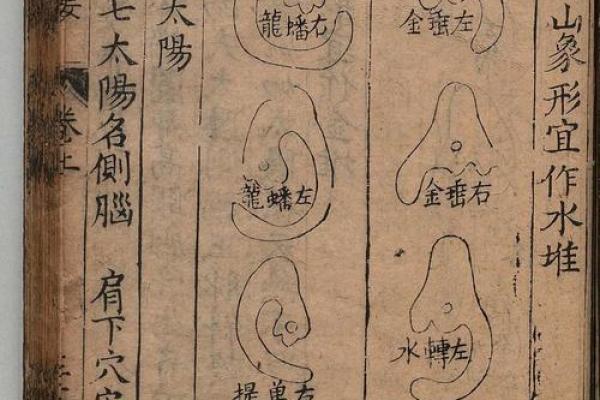 山象形宜作水堆
左垂金
右垂金
左轉水
右蟠龍
左蟠龍
右單提
太陽
七太陽名側腦 肩下穴
卷上